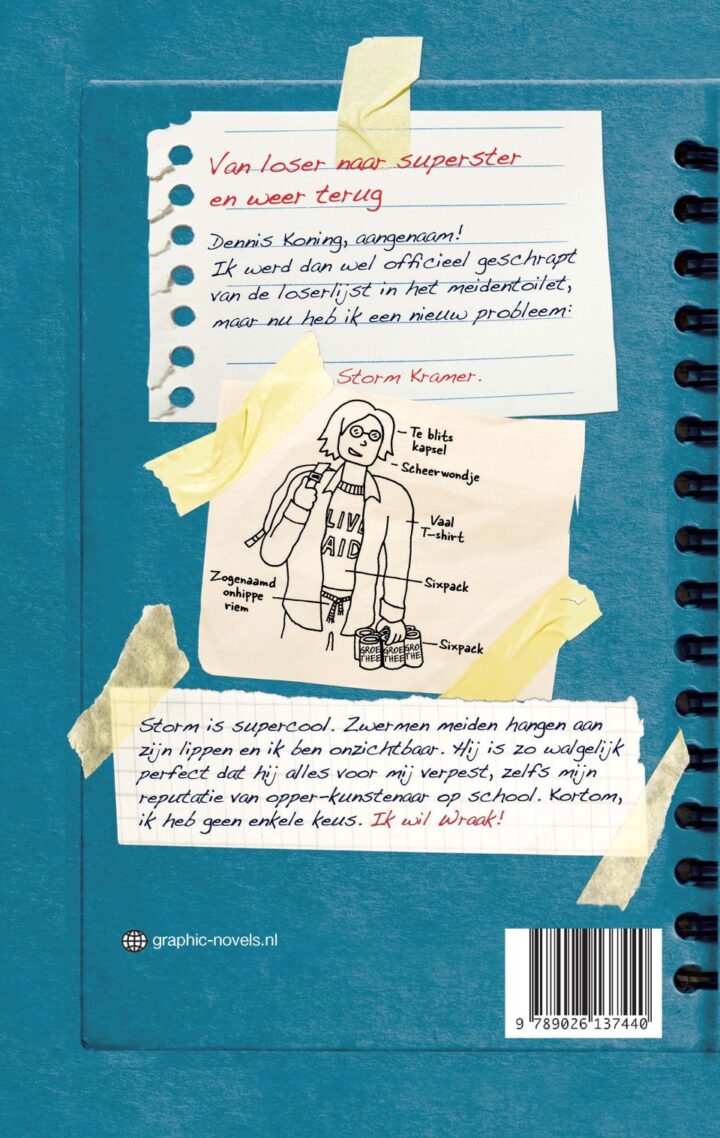 Van loser naar superster
en weer terug
Dennis Koning, aangenaam!
Ik werd dan wel officieel geschrapt
van de loserlijst in het meidentoilet,
maar nu heb ik een nieuw probleem:
Storm Kramer.
Te blits
kapsel
Scheerwondje
LIVE
AID
Vaal
T-shirt
Zogenaamd
onhippe
riem
Sixpack
Sixpack
GROE
THEE
GROE
THEE
GRO
THE
Storm is supercool. Zwermen meiden hangen aan
zijn lippen en ik ben onzichtbaar. Hij is zo walgelijk
perfect dat hij alles voor mij verpest, zelfs mijn
reputatie van opper-kunstenaar op school. Kortom,
ik heb geen enkele keus. Ik wil Wraak!
graphic-novels.nl
9 789026 137440